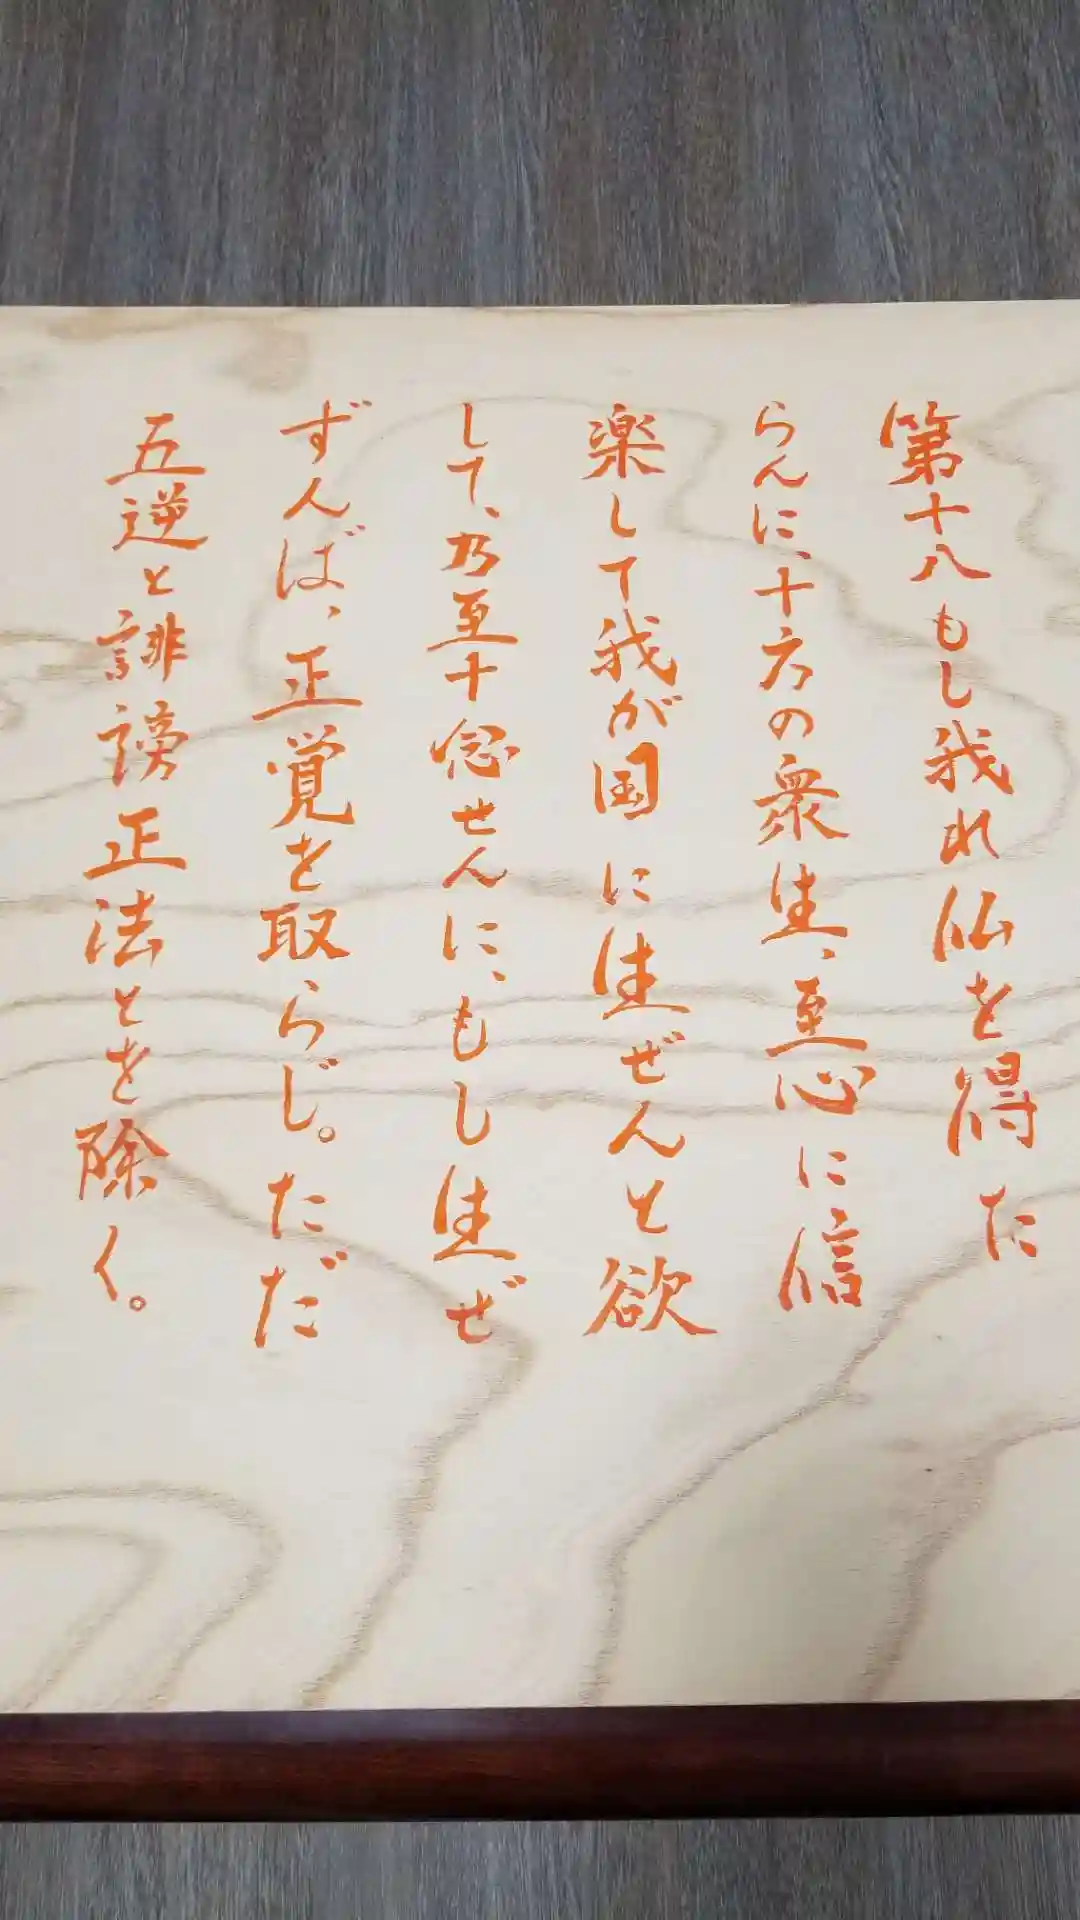 第十八もし我れ仏を得た
らんに、十方の衆生、至心に信
楽して我が国に生ぜんと欲
して、乃至十念せんに、もし生ぜ
ずんば、正覚を取らじ。ただ
五逆と誹謗正法とを除く。